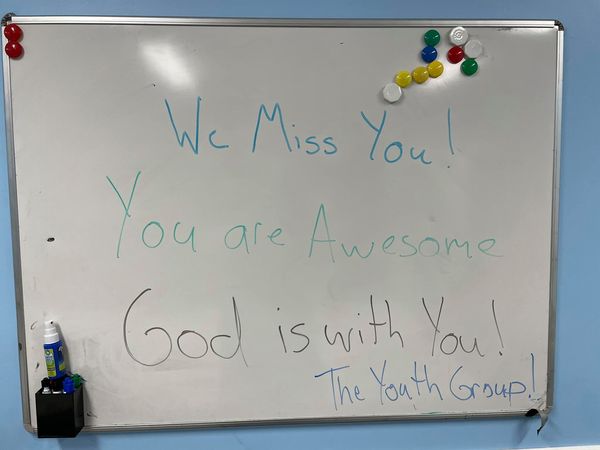 We Miss You!
You are Awesome
God is with You!
The Youth Group!